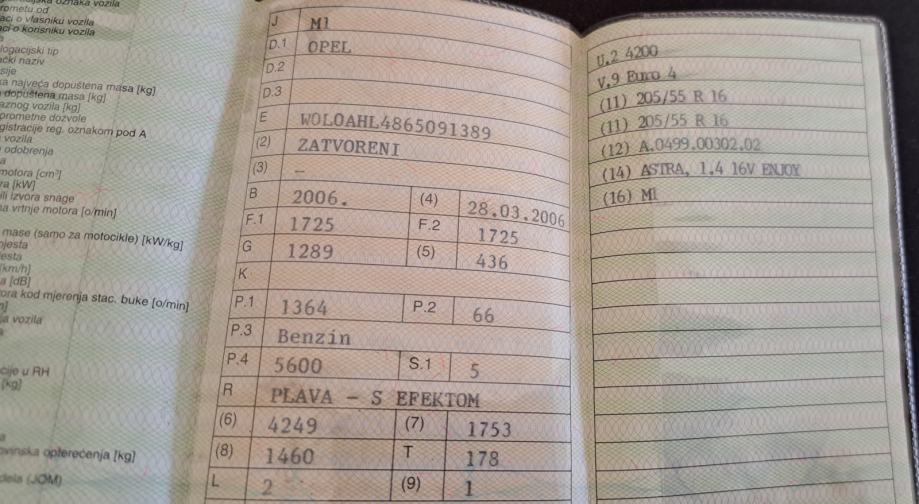 oznaka vozila
prometu od
aci o vlasniku vozila
aci o korisniku vozila
logacijski tip
ački naziv
sije
a najveća dopuštena masa [kg]
dopuštena masa [kg]
aznog vozila [kg]
prometne dozvole
gistracije reg. oznakom pod A
vozila
odobrenja
a
motora [cm³]
ra [kW]
ili izvora snage
na vrtnje motora [o/min]
mase (samo za motocikle) [kW/kg]
mjesta
jesta
[km/h]
a [dB]
ora kod mjerenja stac. buke [o/min]
ja vozila
cije u RH
[kg]
a
ovinska opterećenja [kg]
dela (JOM)
J M1
D.1 OPEL
D.2
D.3
E WOLOAHL4865091389
(2) ZATVORENI
(3) –
B 2006. (4) 28.03.2006
F.1 1725 F.2 1725
G 1289 (5) 436
K
P.1 1364 P.2 66
P.3 Benzin
P.4 5600 S.1 5
R PLAVA - S EFEKTOM
(6) 4249 (7) 1753
(8) 1460 T 178
L 2 (9) 1
U.2 4200
V.9 Euro 4
(11) 205/55 R 16
(11) 205/55 R 16
(12) A.0499.00302.02
(14) ASTRA, 1.4 16V ENJOY
(16) M1